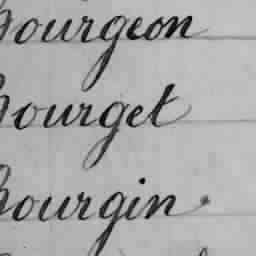 Bourgeon
Bourget
Bourgin.